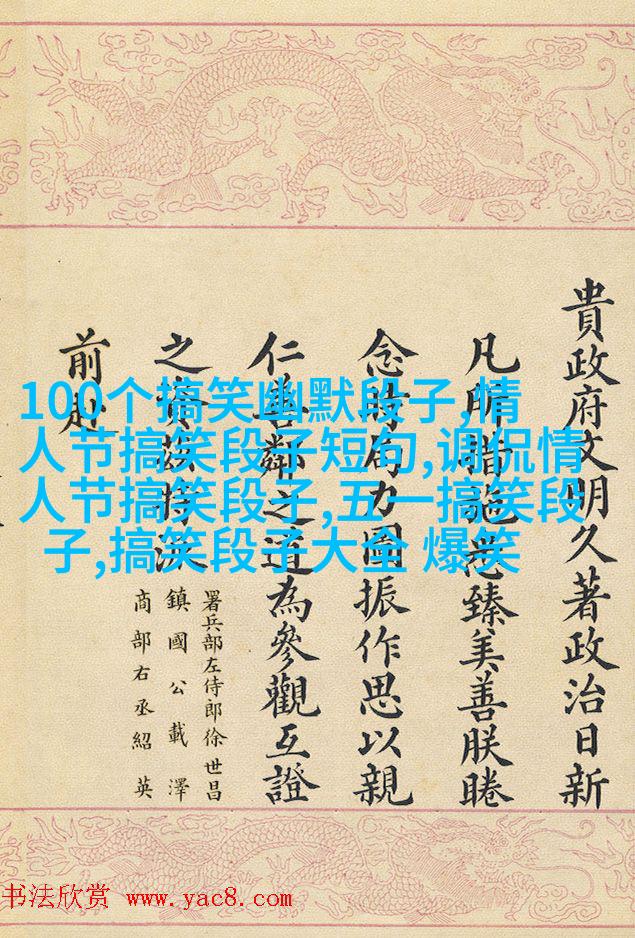 貴政府文明久著政治日新
凡所措施悉臻美善朕睠
念時局力圖振作思以親
仁善鄰之道為參觀互證
之資茲特派
署兵部左侍郎徐世昌
鎮國公載澤
商部右丞紹英
前赴
100个搞笑幽默段子,情
人节搞笑段子短句,调侃情
人节搞笑段子,五一搞笑段
子,搞笑段子大全 爆笑
书法欣赏 www.yac8.com